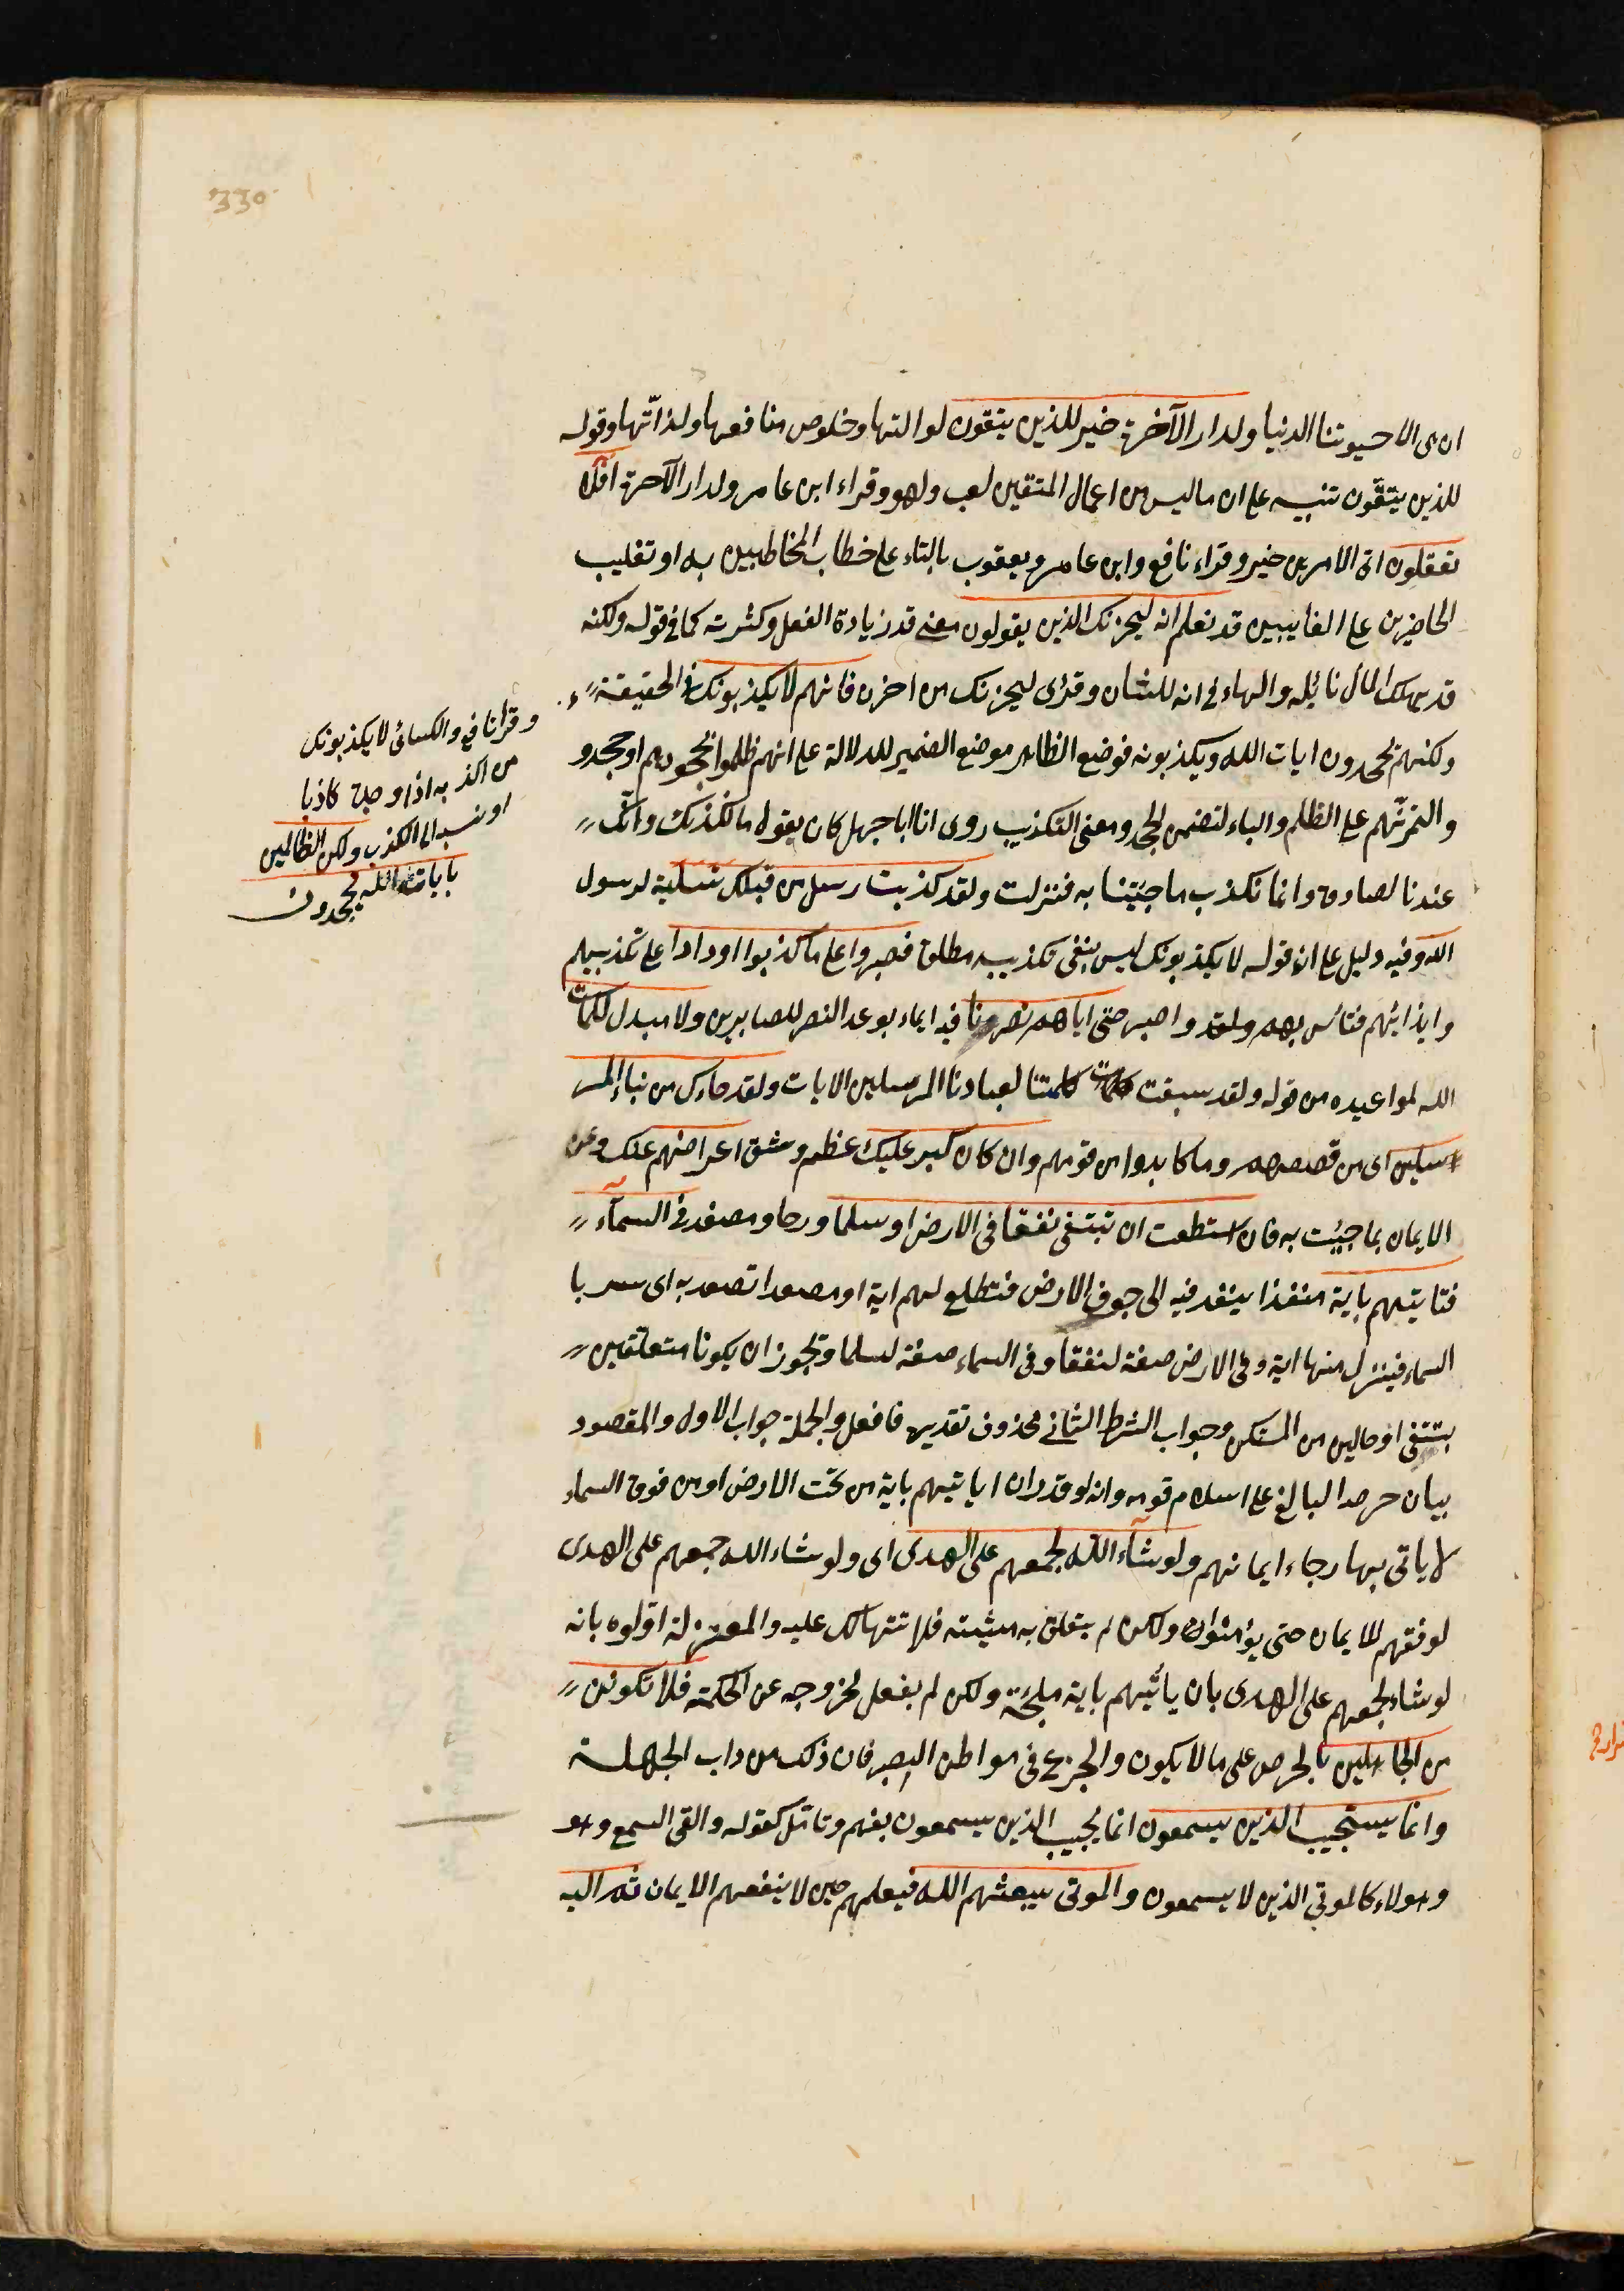 330
ان هى الا حيوتنا الدنيا ولدار الآخرة خير للذين يتقون لدوامها وخلوص منافعها ولذاتها وقوله
للذين يتقون تنبيه على ان ما ليس من اعمال المتقين لعب ولهو وقراء ابن عامر ولدار الآخرة افلا
تعقلون اى الامرين خير وقراء نافع وابن عامر ويعقوب بالتاء على خطاب المخاطبين به او تغليب
الحاضرين على الغايبين قد نعلم انه ليحزنك الذين يقولون معنى قد زيادة الفعل وكثرته كما فى قوله ولكنه
قد يهلك المال نائله والهاء فى انه للشان وقرى ليحزنك من احزن فانهم لا يكذبونك فى الحقيقة
ولكنهم يجحدون ايات الله ويكذبونه فوضع الظاهر موضع الضمير للدلالة على انهم ظلموا بجحودهم او جحدو
والتمرنهم على الظلم والباء لتضمن الجحد ومعنى التكذيب روى ان ابا جهل كان يقول ما نكذبك وانك
عندنا لصادق وانما نكذب ما جئتنا به فنزلت ولقد كذبت رسل من قبلك تسلية لرسول
الله وفيه دليل على ان قوله لا يكذبونك ليس بنفى تكذيبه مطلقا فصبروا على ما كذبوا واوذوا على تكذيبهم
وايذائهم فتاس بهم واصبر حتى اتاهم نصرنا فيه ايماء بوعد النصر للصابرين ولا مبدل لكلمات
الله لمواعيده من قوله ولقد سبقت كلمتنا لعبادنا المرسلين الايات ولقد جاءك من نباء المر
سلين اى من قصصهم وما كابدوا من قومهم وان كان كبر عليك عظم وشق اعراضهم عنك وعن
الايمان بما جيئت به فان استطعت ان تبتغى نفقا فى الارض او سلما فى السمآء
فتايتهم باية منفذا ينفد فيه الى جوف الارض فتطلع لهم اية او مصعدا تصعد به اى
السماء فينزل منها اية وفى الارض صفة لنفقا وفى السماء صفة لسلما ويجوز ان يكونا متعلقين
بتبتغى او حالين من المستكن وجواب الشرط الثانى محذوف تقديره فافعل والجملة جواب الاول والمقصود
بيان حرصه البالغ على اسلام قومه وانه لو قدر ان ياتيهم باية من تحت الارض او من فوق السماء
لا ياتى بها رجاء ايمانهم ولو شآء الله لجمعهم على الهدى اى ولو شاء الله جمعهم على الهدى
لوفقهم للايمان حتى يؤمنوا ولكن لم يتعلق به مشيته فلا تتهالك عليه والمعتزلة اولوه بانه
لو شاء لجمعهم على الهدى بان ياتيهم باية ملجئة ولكن لم يفعل لخروجه عن الحكمة فلا تكونن
من الجاهلين بالحرص على ما لا يكون والجزع فى مواطن الصبر فان ذلك من داب الجهلة
وانما يستجيب الذين يسمعون انما يجيب الذين يسمعون بفهم وتامل كقوله والقى السمع وهو
وهولاء كالموتى الذين لا يسمعون والموتى يبعثهم الله فيعلمهم حين لا ينفعهم الايمان ثم اليه
وقرا نافع والكسائى لا يكذبونك
من اكذبه اذا وجده كاذبا
او نسبه الى الكذب ولكن الظالمين
بايات الله يجحدون